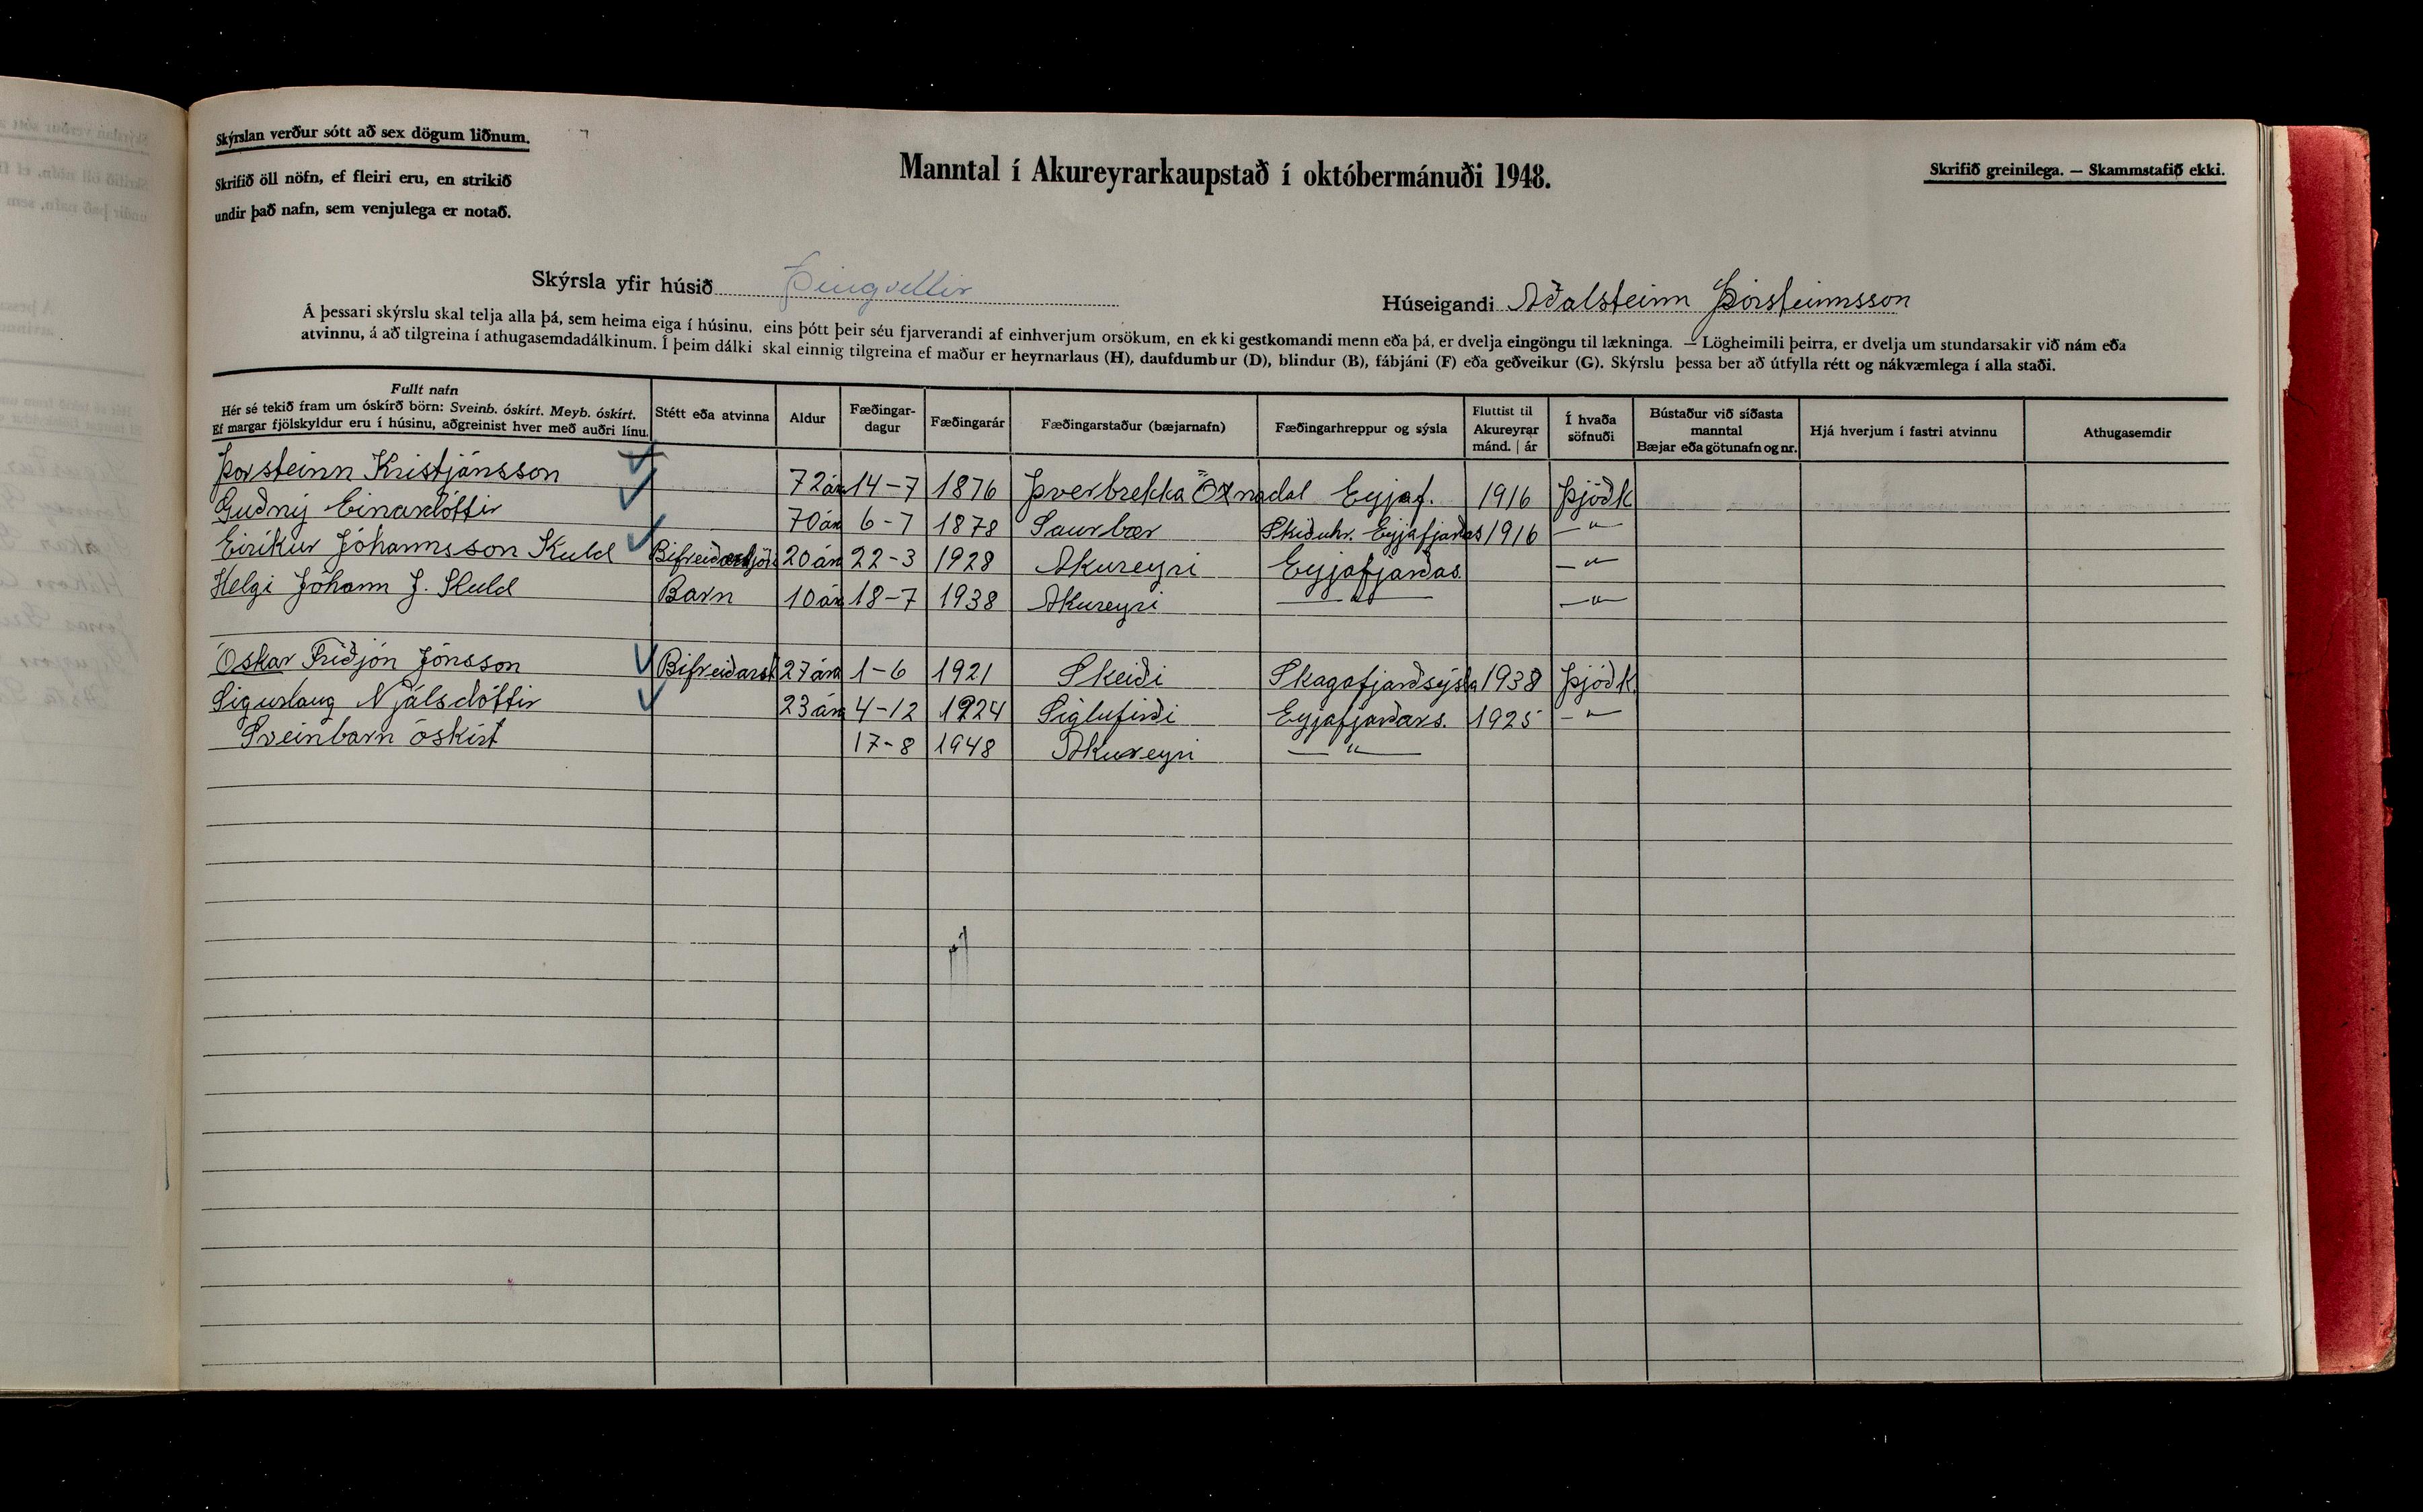 Skýrslan verður sótt að sex dögum liðnum.
Skrifið öll nöfn, ef fleiri eru, en strikið
undir það nafn, sem venjulega er notað.
Manntal í Akureyrarkaupstað í októbermánuði 1948.
Skrifið greinilega. — Skammstafið ekki.
Skýrsla yfir húsið Þingvellir
Húseigandi Aðalsteinn Þórsteinnsson
Á þessari skýrslu skal telja alla þá, sem heima eiga í húsinu, eins þótt þeir séu fjarverandi af einhverjum orsökum, en ekki gestkomandi menn eða þá, er dvelja eingöngu til lækninga. — Lögheimili þeirra, er dvelja um stundarsakir við nám eða
atvinnu, á að tilgreina í athugasemdadálkinum. Í þeim dálki skal einnig tilgreina ef maður er heyrnarlaus (H), daufdumbur (D), blindur (B), fábjáni (F) eða geðveikur (G). Skýrslu þessa ber að útfylla rétt og nákvæmlega í alla staði.
Fullt nafn
Hér sé tekið fram um óskírð börn: Sveinb. óskírt. Meyb. óskírt.
Ef margar fjölskyldur eru í húsinu, aðgreinist hver með auðri línu.
Stétt eða atvinna
Aldur
Fæðingar-
dagur
Fæðingarár
Fæðingarstaður (bæjarnafn)
Fæðingarhreppur og sýsla
Fluttist til
Akureyrar
mánd. | ár
Í hvaða
söfnuði
Bústaður við síðasta
manntal
Bæjar eða götunafn og nr.
Hjá hverjum í fastri atvinnu
Athugasemdir
Þorsteinn Kristjánsson 72 ára 14-7 1876 Þverbrekka Öxnadal Eyjaf. 1916 Þjóðk
Guðný Einarsdóttir 70 ára 6-7 1878 Saurbær Skiðuhr. Eyjafjarðas 1916 —"—
Eiríkur Jóhannsson Kuld Bifreiðarstjóri 20 ára 22-3 1928 Akureyri Eyjafjarðas. —"—
Helgi Jóhann J. Kuld Barn 10 ára 18-7 1938 Akureyri —"— —"—
Óskar Friðjón Jónsson Bifreiðarst 27 ára 1-6 1921 Skeiði Skagafjarðsýsla 1938 Þjóðk
Sigurlaug Njálsdóttir 23 ára 4-12 1924 Siglufirði Eyjafjarðars. 1925 —"—
Sveinbarn óskírt 17-8 1948 Akureyri —"—